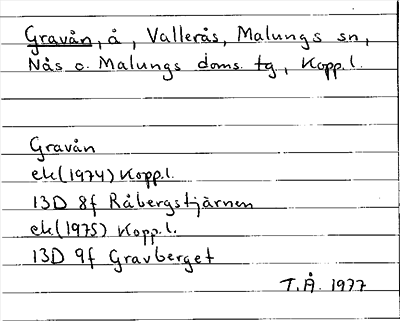 Gravån, å, Vallerås, Malungs sn,
Nås o. Malungs doms. tg, Kopp.l.
Gravån
ek(1974) Kopp.l.
13D 8f Råbergstjärnen
ek(1975) Kopp.l.
13D 9f Gravberget
T.Å. 1977